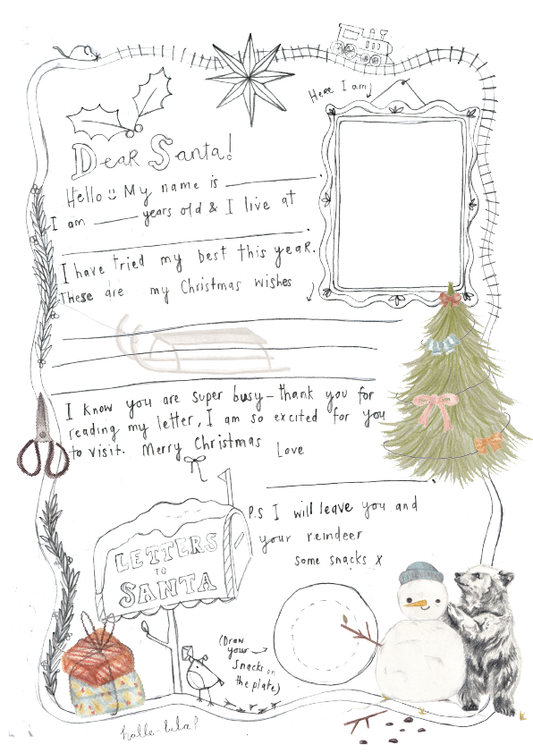 Here I am
Dear Santa!
Hello My name is ______.
I am ____ years old & I live at
I have tried my best this year.
These are my Christmas wishes
I know you are super busy – thank you for
reading my letter, I am so excited for you
to visit. Merry Christmas Love
P.S I will leave you and
your reindeer
some snacks x
LETTERS
TO
SANTA
(Draw
your
snacks on
the plate)